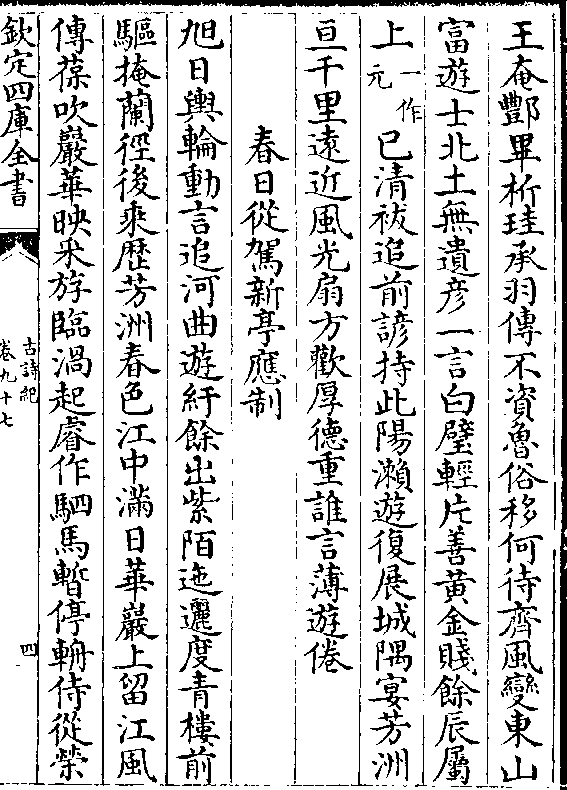 王奄酆畢析珪承羽傳不資魯俗移何待齊風變東山
富遊士北土無遺彦一言白璧輕片善黄金賤餘辰屬
上一作元巳清祓追前諺持此陽瀨遊復展城隅宴芳洲
亘千里遠近風光扇方歡厚德重誰言薄遊倦
春日從駕新亭應制
旭日輿輪動言追河曲遊紆餘出紫陌迤邐度青樓前
驅掩蘭徑後乘歴芳洲春色江中滿日華巖上留江風
傳葆吹巖華映采斿臨渦起睿作駟馬暫停輈侍從榮
欽定四庫全書
古詩紀
卷九十七
四